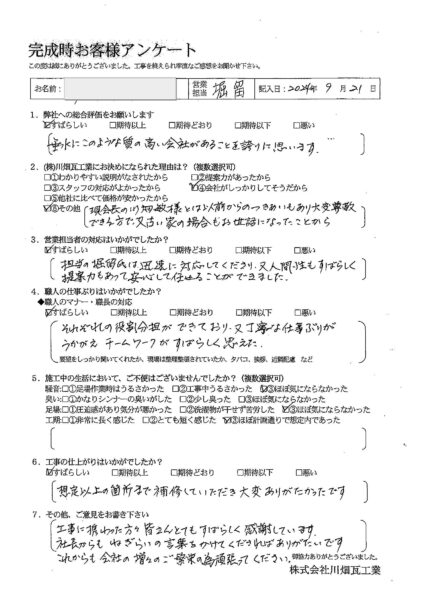 完成時お客様アンケート
この度は誠にありがとうございました。工事を終えられ率直なご感想をお聞かせ下さい。
お名前： 営業担当 堀留 記入日：2024年 9月 21日
1．弊社への総合評価をお願いします
☑すばらしい □期待以上 □期待どおり □期待以下 □悪い
このような質の高い会社があることを誇りに思います。…
2．(株)川畑瓦工業にお決めになられた理由は？（複数選択可）
□①わかりやすい説明がなされたから □②提案力があったから
□③スタッフの対応がよかったから ☑④会社がしっかりしてそうだから
□⑤他社に比べて価格が安かったから
☑⑥その他 現会長の川畑敏様とは以前からのつきあいもあり大変尊敬
できる方だ 又古い家の場合もお世話になったことから
3．営業担当者の対応はいかがでしたか？
☑すばらしい □期待以上 □期待どおり □期待以下 □悪い
担当の堀留氏は迅速に対応してくださり、又人間性もすばらしく
提案力もあって安心して任せることができました。
4．職人の仕事ぶりはいかがでしたか？
◆職人のマナー・職長の対応
☑すばらしい □期待以上 □期待どおり □期待以下 □悪い
それぞれの役割分担ができており、又丁寧な仕事ぶりが
うかがえ チームワークがすばらしく思えた。
要望をしっかり聞いてくれたか、現場は整理整頓されていたか、タバコ、挨拶、近隣配慮 など
5．施工中の生活において、ご不便はございませんでしたか？（複数選択可）
騒音:□①足場作業時はうるさかった □②工事中うるさかった ☑③ほぼ気にならなかった
臭い:□①かなりシンナーの臭いがした □②少し臭った □③ほぼ気にならなかった
足場:□①圧迫感があり気分が悪かった □②洗濯物が干せず苦労した ☑③ほぼ気にならなかった
工期:□①非常に長く感じた □②とても短く感じた ☑③ほぼ計画通りで想定内であった
6．工事の仕上がりはいかがでしたか？
☑すばらしい □期待以上 □期待どおり □期待以下 □悪い
想定以上の箇所まで補修していただき大変ありがたかったです
7．その他、ご意見をお書き下さい
工事に携わった方々皆さんとてもすばらしく感謝しています。
社長からもねぎらいの言葉をかけてくださればありがたいです
これからも会社の増々のご繁栄の為頑張ってください。
御協力ありがとうございました。
株式会社川畑瓦工業